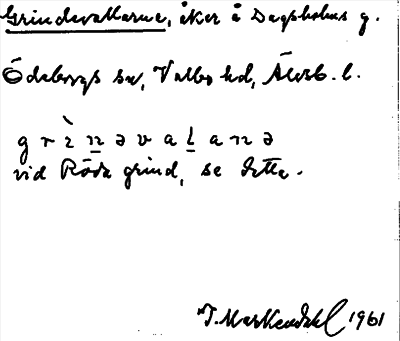 Grindevallarne, åker å Dagsholms g.
Ödeborgs sn, Valbo hd, Älvsb. l.
g r ì n ə v a l a n ə
vid Röda grind, se detta.
T. Markendahl 1961